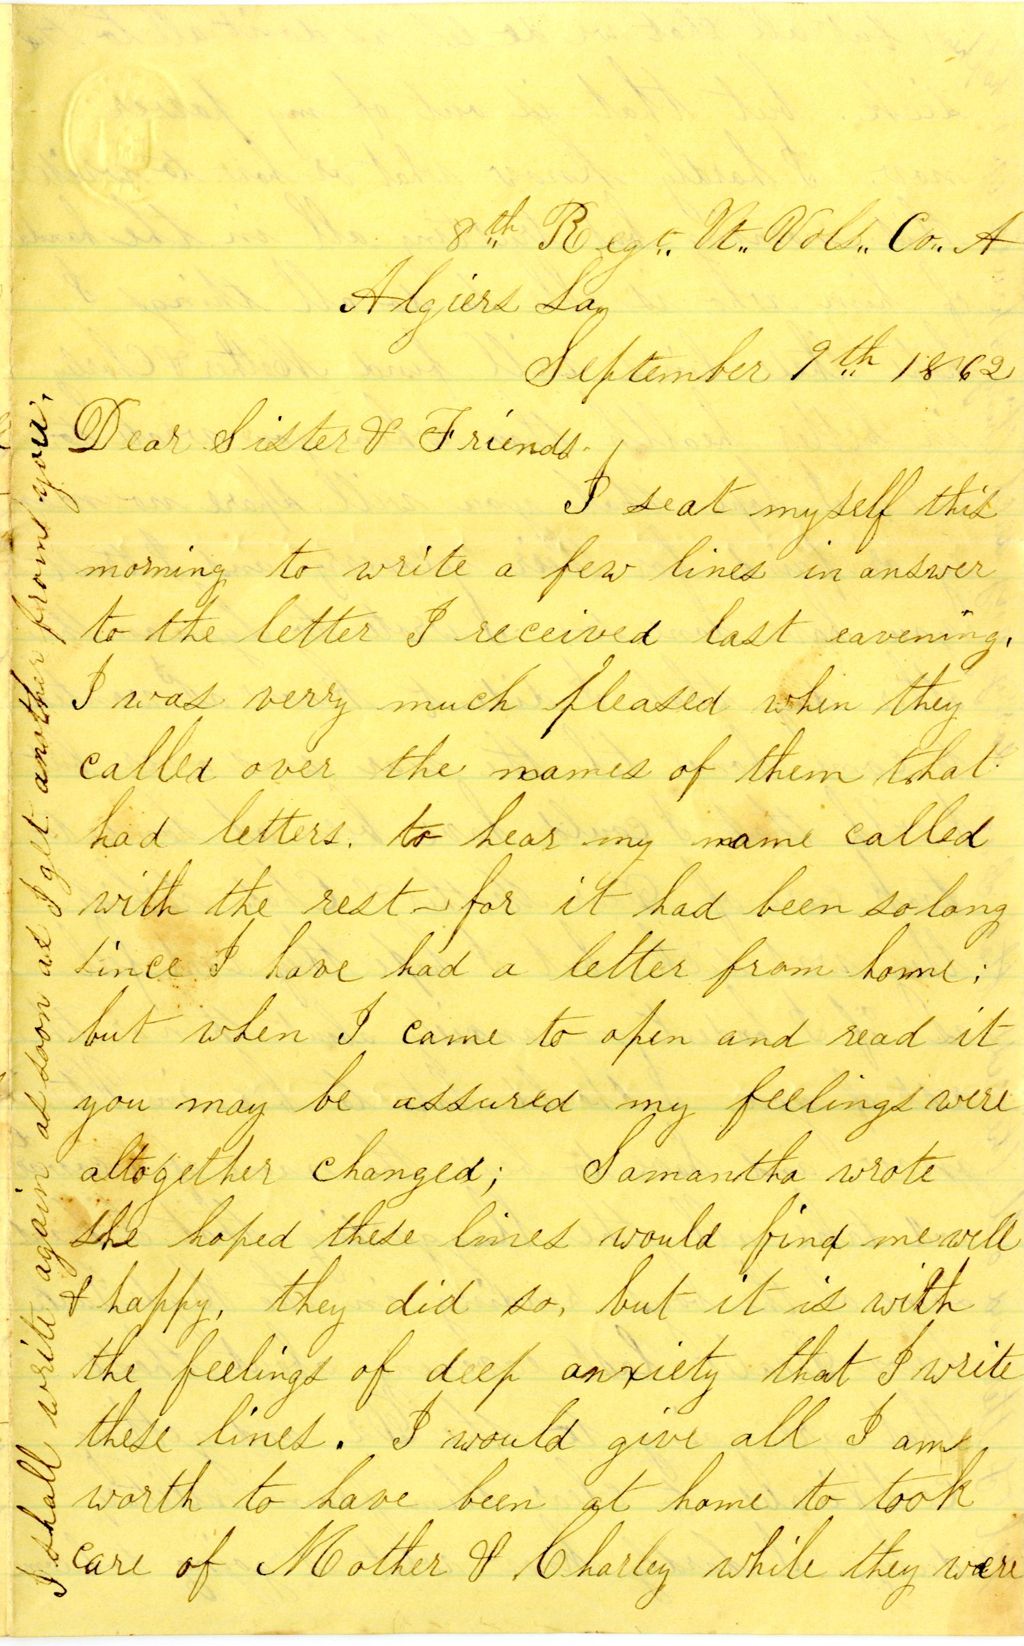 8th Regt. Vt. Vols. Co. A
Algiers La,
September 9th 1862
Dear Sister & Friends.
I seat myself this
morning to write a few lines in answer
to the letter I received last eavening.
I was verry much pleased when they
called over the names of them that
had letters. to hear my name called
with the rest - for it had been so long
since I have had a letter from home;
but when I came to open and read it
you may be assured my feelings were
altogether changed; Samantha wrote
she hoped these lines would find me well
& happy, they did so, but it is with
the feelings of deep anxiety that I write
these lines. I would give all I am
worth to have been at home to took
care of Mother & Charley while they were
I shall write again as soon as I get another from you.